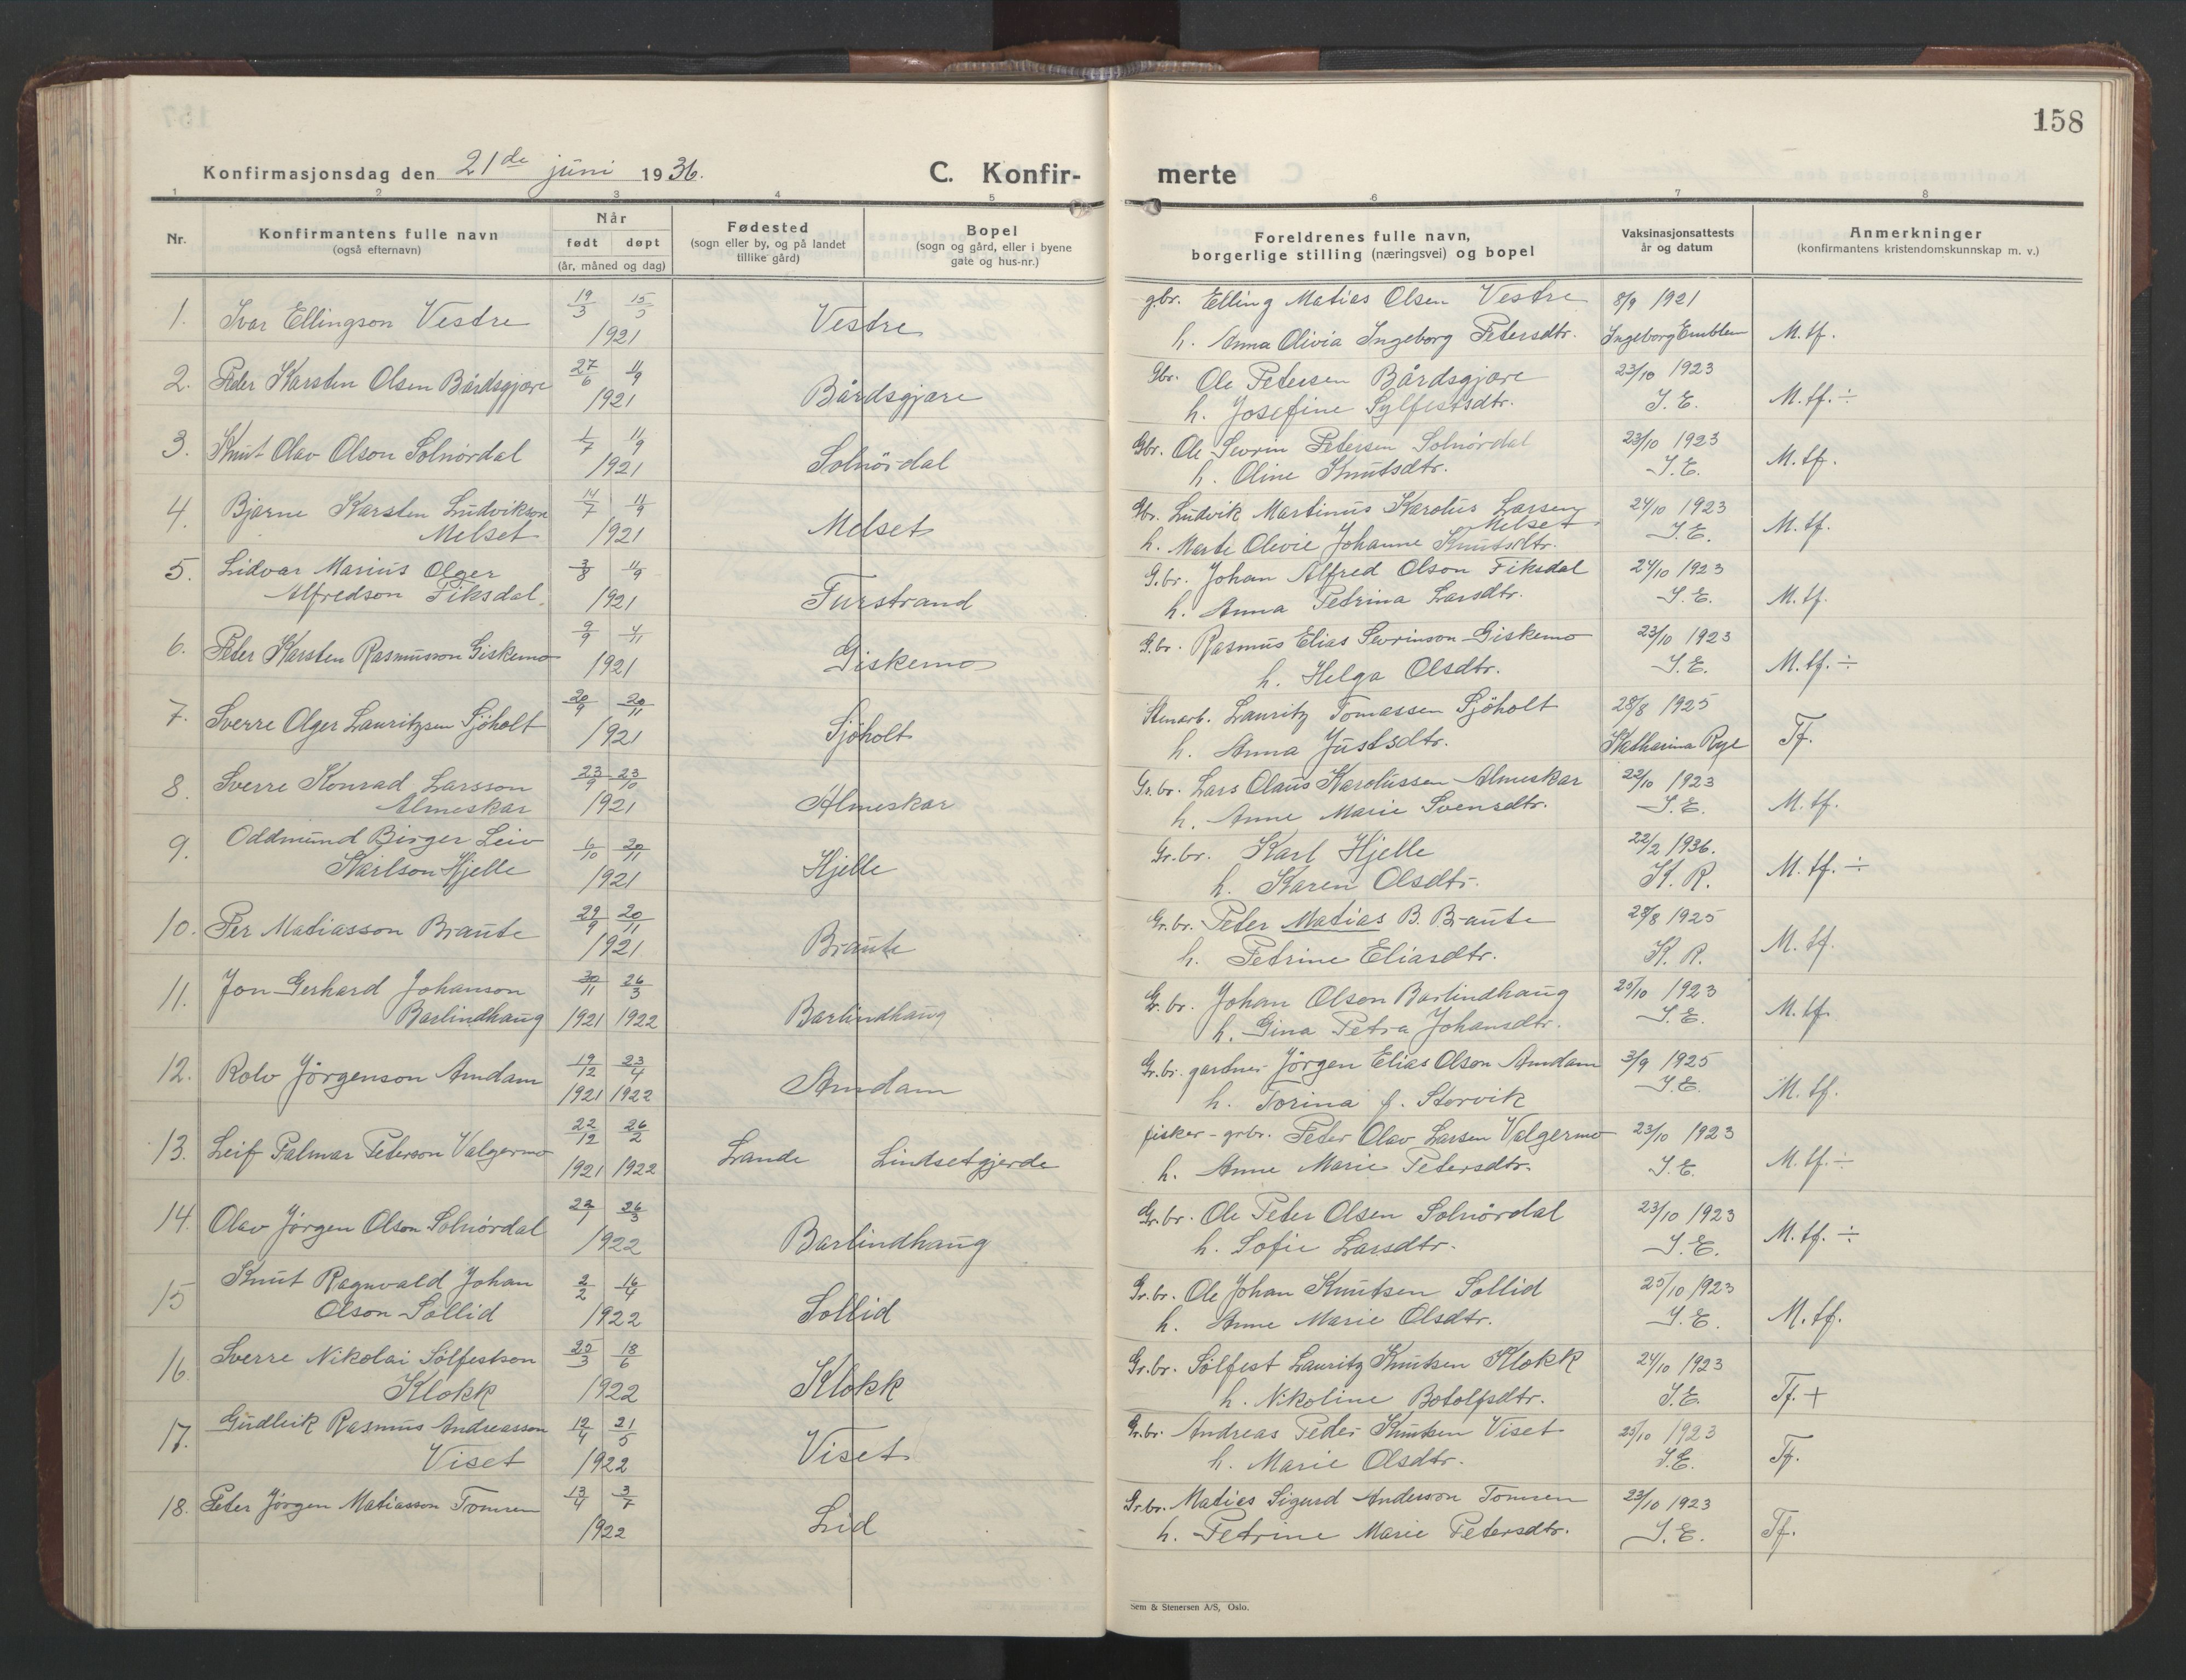 158
Konfirmasjonsdag den 21de juni 1936.
C. Konfir- merte
1 2 3 4 5 6 7 8
Nr.
Konfirmantens fulle navn
(også efternavn)
Når
født døpt
(år, måned og dag)
Fødested
(sogn eller by, og på landet
tillike gård)
Bopel
(sogn og gård, eller i byene
gate og hus-nr.)
Foreldrenes fulle navn,
borgerlige stilling (næringsvei) og bopel
Vaksinasjonsattests
år og datum
Anmerkninger
(konfirmantens kristendomskunnskap m. v.)
1. Ivar Ellingson Vestre 19/3 15/5 1921 Vestre
gbr. Elling Matias Olsen Vestre 8/9 1921
h. Anna Olivia Ingeborg Petersdtr. Ingeborg Emblem M.tf.
2. Peder Karsten Olsen Bårdsgjære 27/6 11/9 1921 Bårdsgjære
Gbr. Ole Petersen Bårdsgjære 23/10 1923
h. Josefine Sylfestsdtr. I.E. M.tf. ÷
3. Knut Olav Olson Solnördal 1/7 11/9 1921 Solnördal
Gbr. Ole Sevrin Petersen Solnördal 23/10 1923
h. Oline Knutsdtr. I.E. M.tf.
4. Bjarne Karsten Ludvikson
Melset 14/7 11/9 1921 Melset
Gbr. Ludvik Martinus Karolus Larsen
Melset 24/10 1923
h. Marte Olivie Johanne Knutsdtr. I.E. M.tf.
5. Lidvar Marius Olger
Alfredson Fiksdal. 3/8 11/9 1921 Furstrand
G.br. Johan Alfred Olson Fiksdal 24/10 1923
h. Anna Petrina Larsdtr. I.E. M.tf.
6. Peter Karsten Rasmusson Giskemo 9/9 4/11 1921 Giskemo
G.br. Rasmus Elias Sevrinson Giskemo 23/10 1923
h. Helga Olsdtr. I.E. M.tf. ÷
7. Sverre Olger Lauritzsen Sjöholt 20/9 20/11 1921 Sjöholt
Stenarb. Lauritz Tomassen Sjöholt 28/8 1925
h. Anna Justsdtr. Katharina Rye Tf.
8. Sverre Konrad Larsson
Almeskar 23/9 23/10 1921 Almeskar
Gr.br. Lars Olaus Karolussen Almeskar 22/10 1923
h. Anne Marie Svensdtr. I.E. M.tf.
9. Oddmund Birger Leiv
Karlson Hjelle 6/10 20/11 1921 Hjelle
Gr.br. Karl Hjelle 22/2 1936.
h. Karen Olsdtr. K.R. M.tf. ÷
10. Per Matiasson Braute 29/9 20/11 1921 Braute
Gr.br. Peter Matias B. Braute 28/8 1925
h. Petrine Eliasdtr. K.R. M.tf.
11. Jon Gerhard Johanson
Barlindhaug 30/11 1921 26/3 1922 Barlindhaug
Gr.br. Johan Olson Barlindhaug 25/10 1923
h. Gina Petra Johansdtr. I.E. M.tf.
12. Rolv Jörgenson Amdam 19/12 1921 23/4 1922 Amdam
Gr.br. gartner Jörgen Elias Olson Amdam 3/9 1925
h. Torina f. Storvik I.E. M.tf.
13. Leif Palmar Peterson Valgermo 22/12 1921 26/2 1922 Lande Lindsetgjerde
fisker - grbr. Peter Olav Larsen Valgermo 23/10 1923
h. Anne Marie Petersdtr. I.E. M.tf. ÷
14. Olav Jörgen Olson Solnördal 22/1 26/3 1922 Barlindhaug
Gr.br. Ole Peter Olsen Solnördal 23/10 1923
h. Sofie Larsdtr. I.E. M.tf. ÷
15 Knut Ragnvald Johan
Olson Sollid 2/2 16/4 1922 Sollid
Gr.br. Ole Johan Knutsen Sollid 25/10 1923
h. Anne Marie Olsdtr. I.E. M.tf.
16. Sverre Nikolai Sölfestson
Klokk 25/3 18/6 1922 Klokk
Gr.br. Sölfest Lauritz Knutsen Klokk 24/10 1923
h. Nikoline Botolfsdtr. I.E. Tf. +
17. Gudleik Rasmus Andreasson
Viset 12/4 21/5 1922 Viset
Gr.br. Andreas Peder Knutsen Viset 25/10 1923
h. Marie Olsdtr. I.E. Tf.
18. Peter Jörgen Matiasson Tomren 13/4 3/7 1922 Lid
Gr.br. Matias Sigurd Anderson Tomren 23/10 1923
h. Petrine Marie Petersdtr. I.E. Tf.
Sem & Stenersen A/S, Oslo.